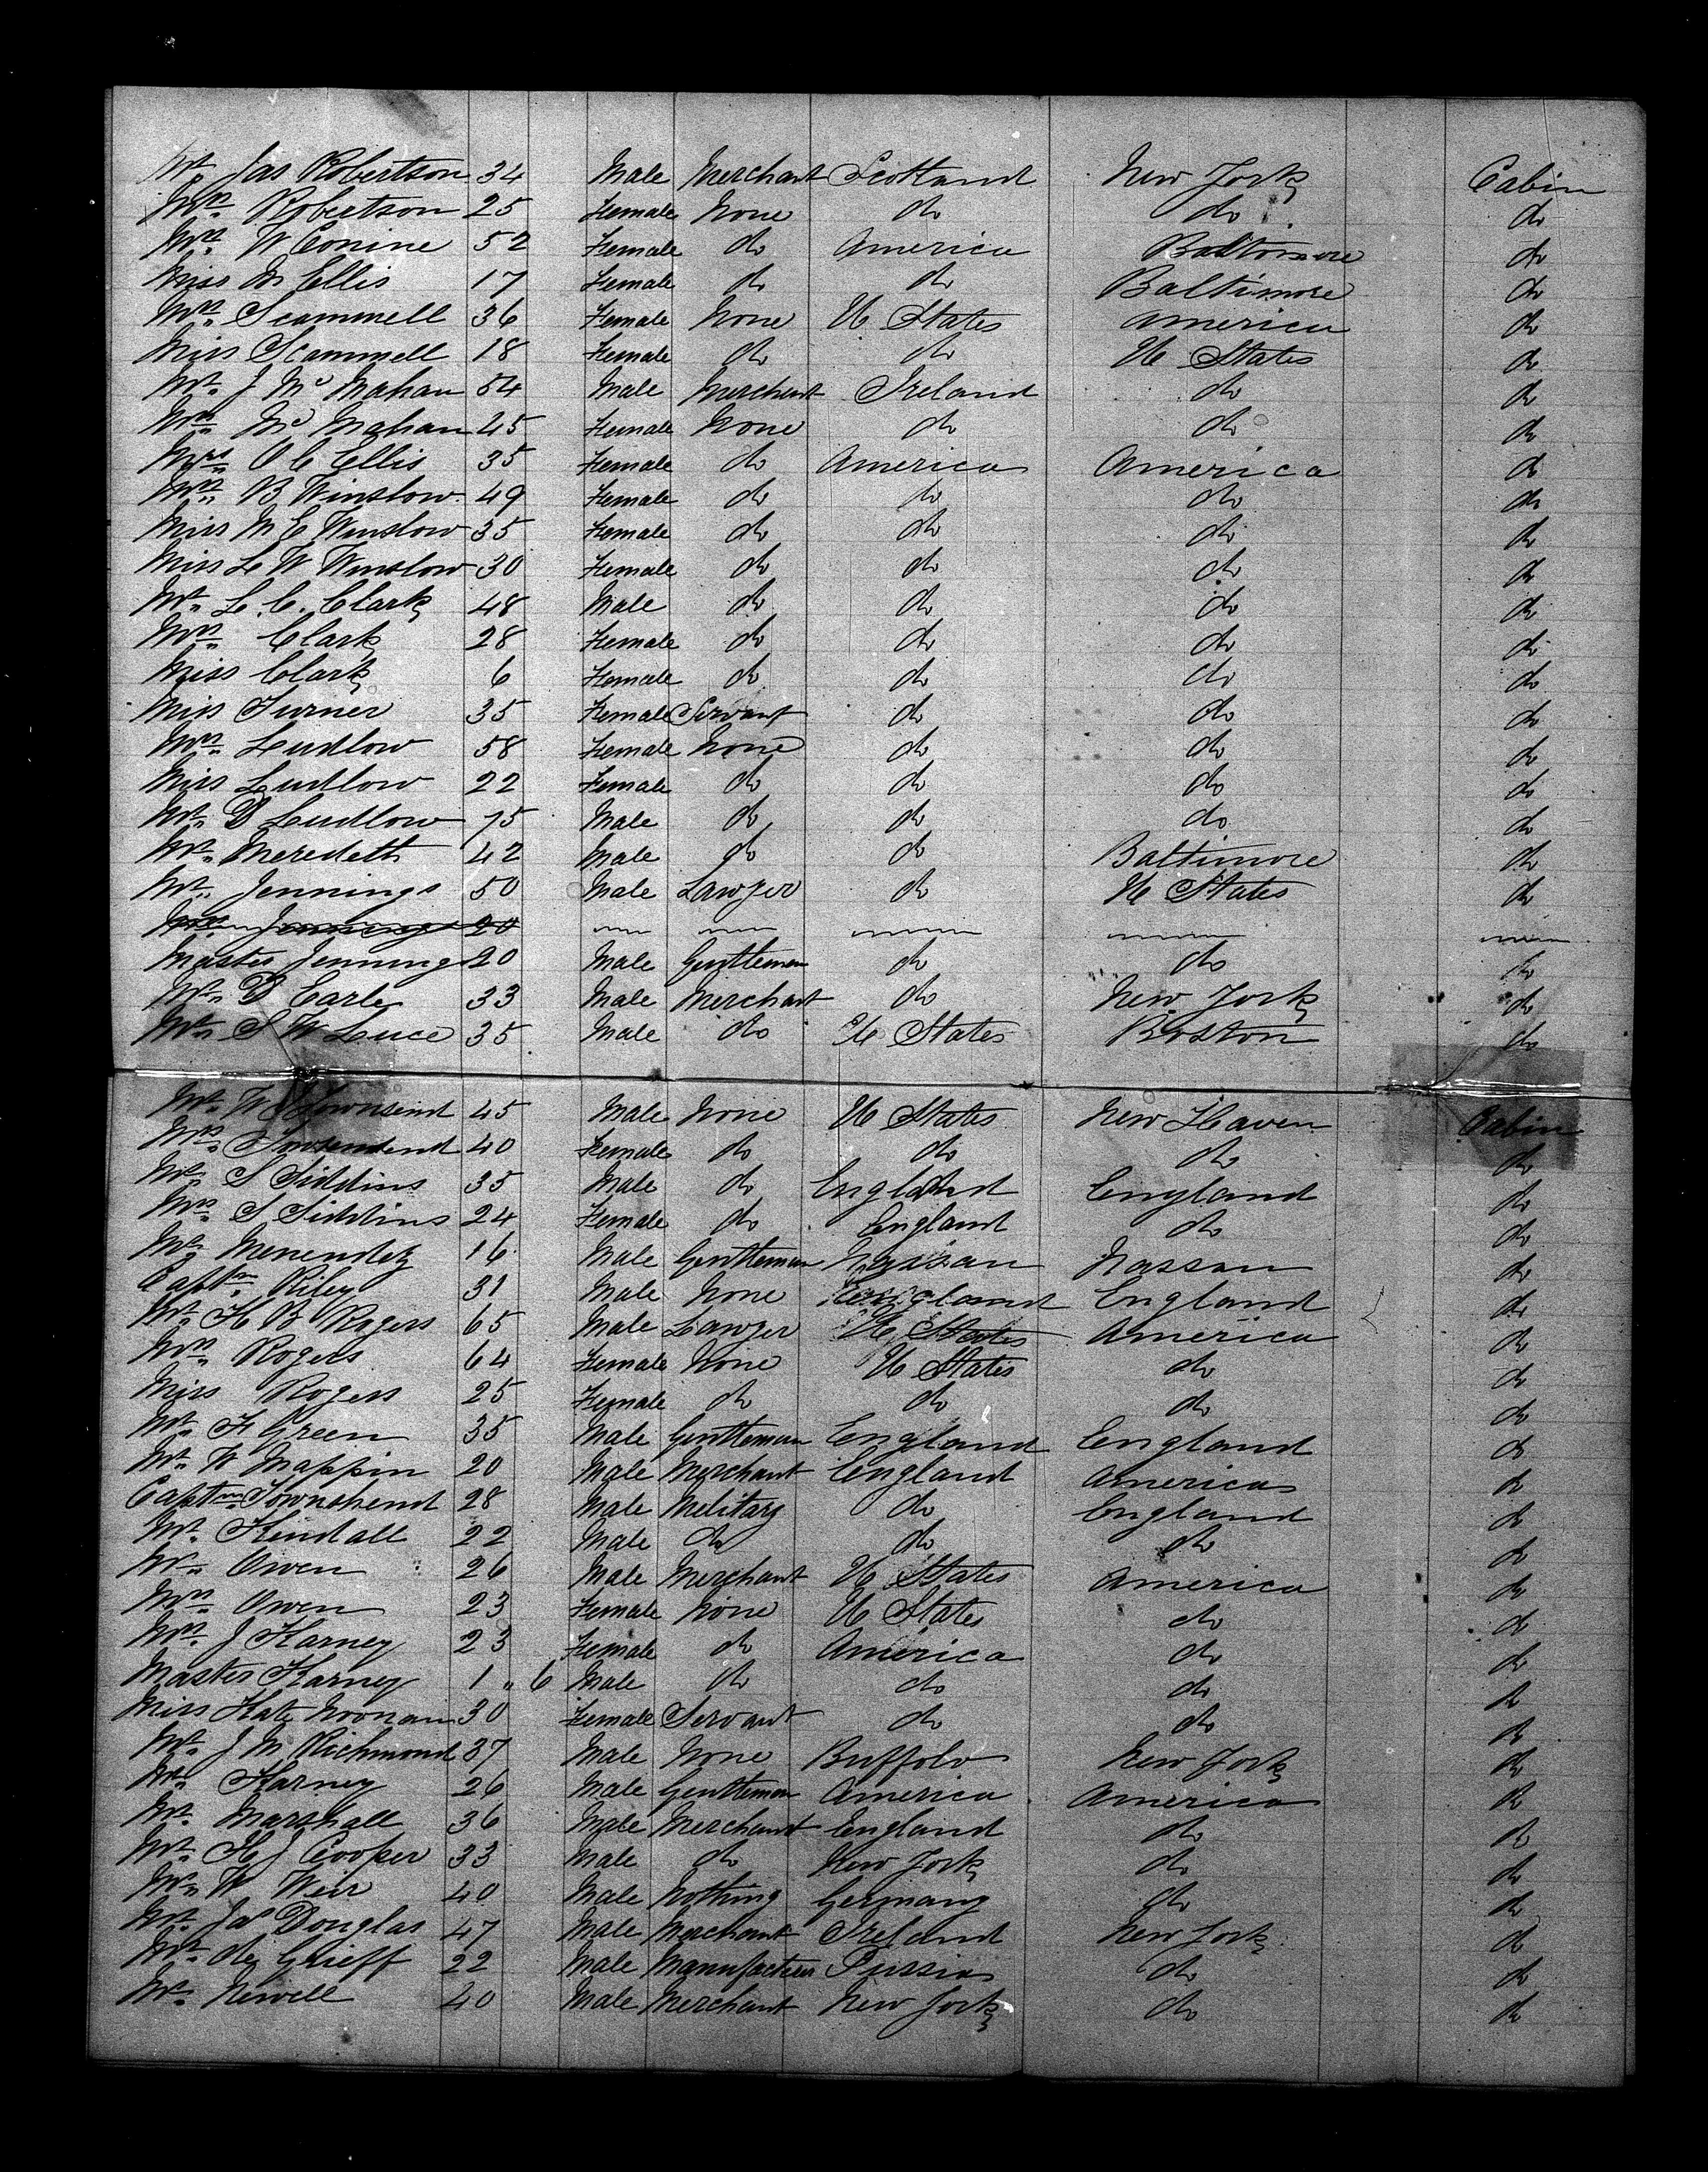 Mr. Jas Robertson 34 Male Merchant Scotland New York Cabin
Mrs. Robertson 25 Female None do do do
Mrs. W Conine 52 Female do America Baltimore do
Miss M Ellis 17 Female do do Baltimore do
Mrs. Scammell 36 Female None U States America do
Miss Scammell 18 Female do do U States do
Mr. J McMahan 54 Male Merchant Ireland do do
Mrs. McMahan 45 Female None do do do
Mrs. O C Ellis 35 Female do America America do
Mrs. B Winslow 49 Female do do do do
Miss M E Winslow 35 Female do do do do
Miss L W Winslow 30 Female do do do do
Mr. L. C. Clark 48 Male do do do do
Mrs. Clark 28 Female do do do do
Miss Clark 6 Female do do do do
Miss Turner 35 Female Servant do do do
Mrs. Ludlow 58 Female None do do do
Miss Ludlow 22 Female do do do do
Mr. D Ludlow 15 Male do do do do
Mr. Meredeth 42 Male do do Baltimore do
Mr. Jennings 50 Male Lawyer do U States do
Mrs. Jennings 20
Master Jennings 20 Male Gentleman do do do
Mr. D Earle 33 Male Merchant do New York do
Mr. S W Luce 35 Male do U States Boston do
Mr. W Townsend 45 Male None U States New Haven Cabin
Mrs. Townsend 40 Female do do do do
Mr. S Siddins 35 Male do England England do
Mrs. S Siddins 24 Female do England do do
Mr. Menendez 16 Male Gentleman Nassau Nassau do
Captn. Riley 31 Male None England England do
Mr. H B Rogers 65 Male Lawyer U States America do
Mrs. Rogers 64 Female None U States do do
Miss Rogers 25 Female do do do do
Mr. F Green 35 Male Gentleman England England do
Mr. W Mappin 20 Male Merchant England America do
Captn. Townshend 28 Male Military do England do
Mr. Kendall 22 Male do do do do
Mr. Owen 26 Male Merchant U States America do
Mrs. Owen 23 Female None U States do do
Mrs. J Karney 23 Female do America do do
Master Karney 1 " 6 Male do do do do
Miss Kate Noonan 30 Female Servant do do do
Mr. J M Richmond 37 Male None Buffolo New York do
Mr. Karney 26 Male Gentleman America America do
Mr. Marshall 36 Male Merchant England do do
Mr. H J Cooper 33 Male do New York do do
Mr. W Weir 40 Male Nothing Germany do do
Mr. Jas Douglas 47 Male Merchant Ireland New York do
Mr. de Grieff 22 Male Manufacturer Russia do do
Mr. Newell 40 Male Merchant New York do do